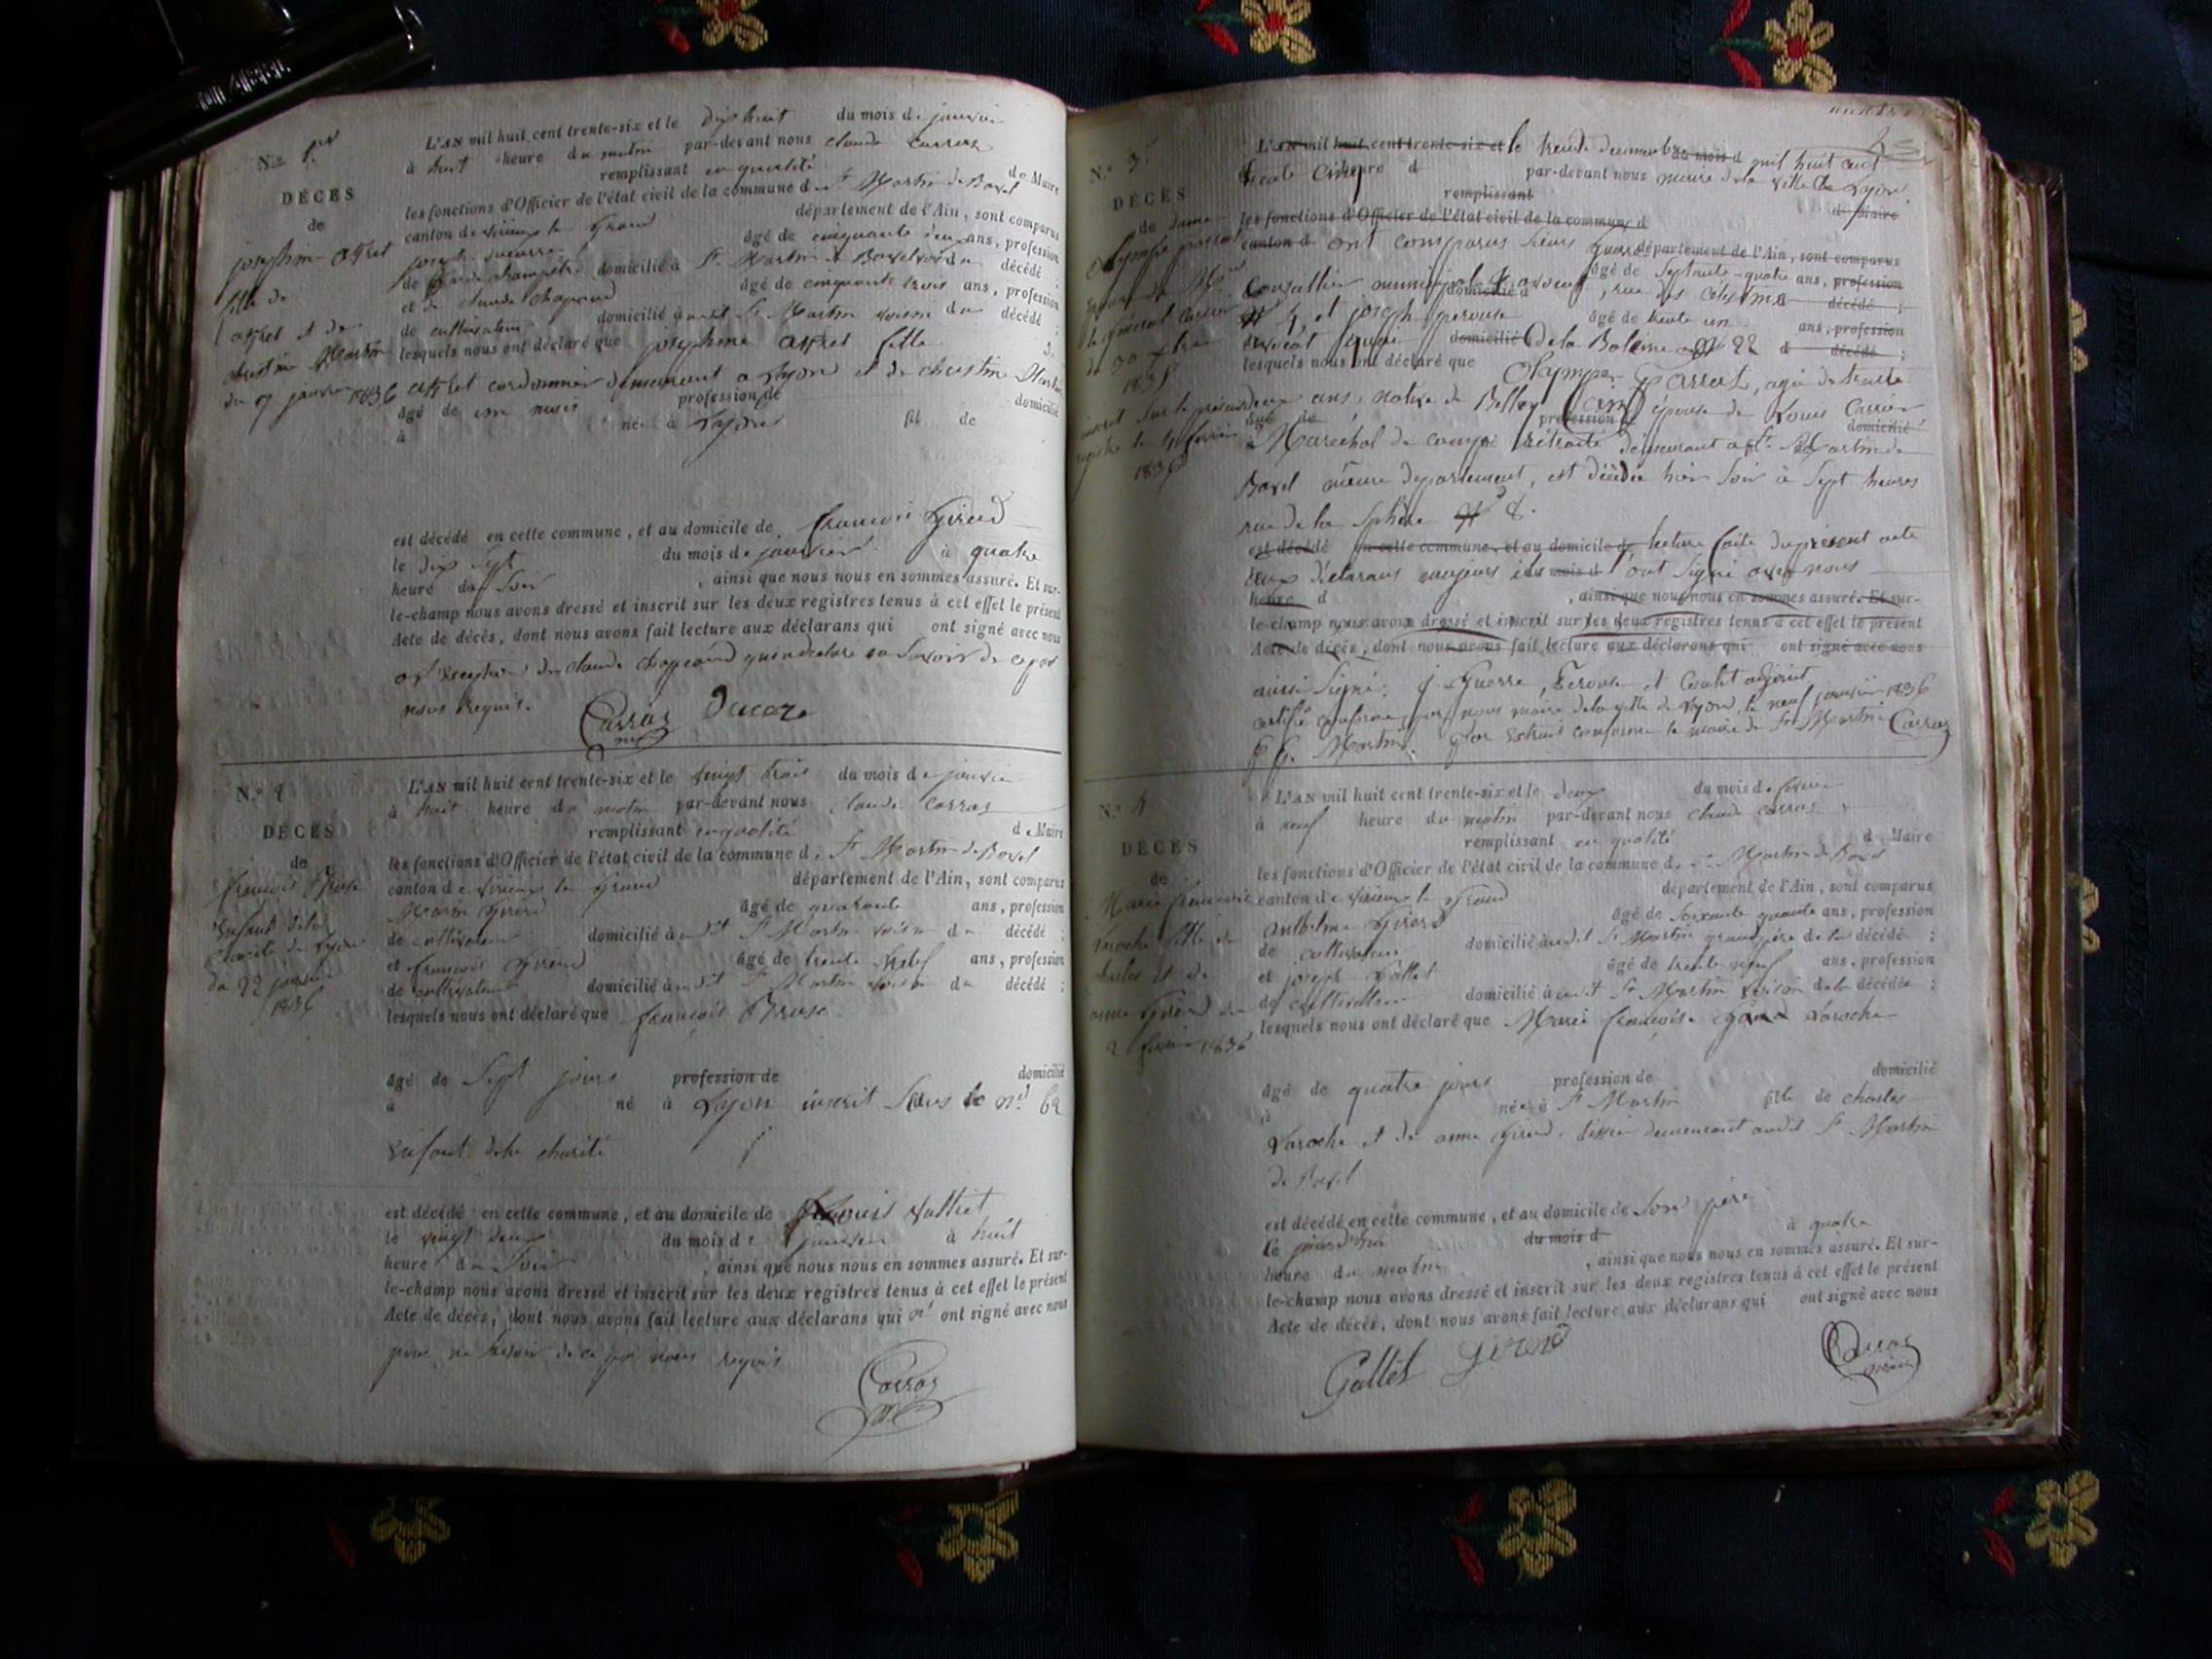 N.º 1.er
DÉCÈS
de
josephine
fille de
et de
Martin
du 17 janvier 1836
L'AN mil huit cent trente-six et le dix huit du mois de janvier
à huit heure du matin par-devant nous claude Carraz
remplissant en qualité de Maire
les fonctions d'Officier de l'état civil de la commune de St Martin de Bavel
canton de virieux le Grand département de l'Ain, sont comparus
âgé de cinquante deux ans, profession
de garde champetre domicilié à St. Martin de Bavel voisin du décédé ;
et de claude chapeand âgé de cinquante trois ans, profession
de cultivateur domicilié à audit St Martin voisin du décédé ;
lesquels nous ont déclaré que josephine fille de
cordonnier demeurant a Lyon et de christine Martin
âgé de un mois profession de domicilié
à né à Lyon fils de
est décédé en cette commune, et au domicile de françois Girend
le dix sept du mois de janvier à quatre
heure du soir , ainsi que nous nous en sommes assuré. Et sur-
le-champ nous avons dressé et inscrit sur les deux registres tenus à cet effet le présent
Acte de décès, dont nous avons fait lecture aux déclarans qui ont signé avec nous
a l'exception de claude chapeand qui a declaré ne savoir de ce par
nous requis.
Carraz Ducoze
N.º 2
DÉCÈS
de
françois Bruse
enfant de la
charité de Lyon
du 22 janvier
1836
L'AN mil huit cent trente-six et le vingt trois du mois de janvier
à huit heure du matin par-devant nous claude Carraz
remplissant en qualité de Maire
les fonctions d'Officier de l'état civil de la commune de St Martin de Bavel
canton de virieux le Grand département de l'Ain, sont comparus
Marin Girend âgé de quarante ans, profession
de cultivateur domicilié à audit St Martin voisin du décédé ;
et françois Girend âgé de trente neuf ans, profession
de cultivateur domicilié à audit St Martin voisin du décédé ;
lesquels nous ont déclaré que françois Bruse
âgé de Sept jours profession de domicilié
à né à Lyon inscrit sous le n.º 62
enfant de la charité
est décédé en cette commune, et au domicile de Louis vulliet
le vingt deux du mois de janvier à huit
heure du soir , ainsi que nous nous en sommes assuré. Et sur-
le-champ nous avons dressé et inscrit sur les deux registres tenus à cet effet le présent
Acte de décès, dont nous avons fait lecture aux déclarans qui n' ont signé avec nous
pour ne savoir de ce par nous requis
Carraz
N.º 3
DÉCÈS
de dame
Olympe parrat
epouse de Mr
le général Carrier
du 30 xbre
1835
inscrit sur le présent
registre le 4 fevrier
1836
L'AN mil huit cent trente-six et le trente decembre du mois d mil huit cent
trente cinq par-devant nous maire de la ville de Lyon
remplissant de Maire
les fonctions d'Officier de l'état civil de la commune d
canton d ont comparus sieurs Guerre département de l'Ain, sont comparus
conseiller municipal avocat âgé de septante-quatre ans, profession
domicilié à , rue des celestins décédé ;
n 4, et joseph perouse âgé de trente un ans, profession
avocat domicilié de la Baleine n 22 d décédé ;
lesquels nous ont déclaré que Olympe Parrat, agée de trente
deux ans, native de Belley (Ain) épouse de Louis Carrier
âgé de profession de domicilié
Maréchal de camp retraité demeurant a St. Martin de
Bavel même departement, est décédée hier soir à Sept heures
rue de la Sphère n 8.
est décédé en cette commune, et au domicile de lecture faite du présent acte
aux déclarans majeurs du mois d ont signé avec nous
heure d , ainsi que nous nous en sommes assuré. Et sur-
le-champ nous avons dressé et inscrit sur les deux registres tenus à cet effet le présent
Acte de décès, dont nous avons fait lecture aux déclarans qui ont signé avec nous
ainsi signé: J. Guerre, Perouse et Coulet adjoint.
certifié conforme par nous maire de la ville de Lyon, le neuf janvier 1836
Martin. Pour extrait conforme le maire de St Martin Carraz
N.º 4
DÉCÈS
de
Marie françoise
Laroche fille de
charles et de
anne Girend du
2 fevrier 1836
L'AN mil huit cent trente-six et le deux du mois de fevrier
à neuf heure du matin par-devant nous claude Carraz
remplissant en qualité de Maire
les fonctions d'Officier de l'état civil de la commune de St Martin de Bavel
canton de virieux le Grand département de l'Ain, sont comparus
anthelme Girend âgé de soixante quatre ans, profession
de cultivateur domicilié à audit St Martin grand père de la décédé ;
et joseph âgé de trente neuf ans, profession
de cultivateur domicilié à audit St Martin voisin de la décédée ;
lesquels nous ont déclaré que Marie françoise Laroche
âgé de quatre jours profession de domicilié
à née à St Martin fille de charles
Laroche et de anne Girend, demeurant audit St Martin
de Bavel
est décédé en cette commune, et au domicile de son père
le jourd'hui du mois d à quatre
heure du matin , ainsi que nous nous en sommes assuré. Et sur-
le-champ nous avons dressé et inscrit sur les deux registres tenus à cet effet le présent
Acte de décès, dont nous avons fait lecture aux déclarans qui ont signé avec nous
Gallet Girend Carraz